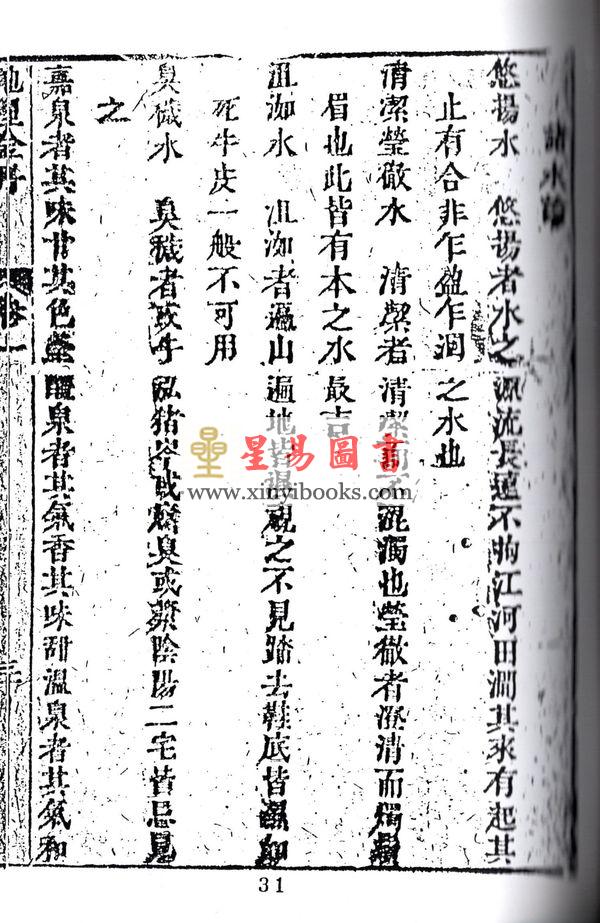 諸水論
悠揚水　悠揚者水之源流長遠不拘江河田澗其來有起其
止有合非乍盈乍涸之水也
清潔瑩徹水　清潔者清潔而不混濁也瑩徹者澄清而燭鬚
眉也此皆有本之水最吉
沮洳水　沮洳者遍山遍地皆濕視之不見踏去鞋底皆濕如
死牛皮一般不可用
臭穢水　臭穢者或牛泓猪或腐臭或漿陰陽二宅皆忌見
之
嘉泉者其味甘其色瑩醴泉者其氣香其味甜溫泉者其氣和
地理大全書　卷一　三
星易圖書
www.xinyibooks.com
31